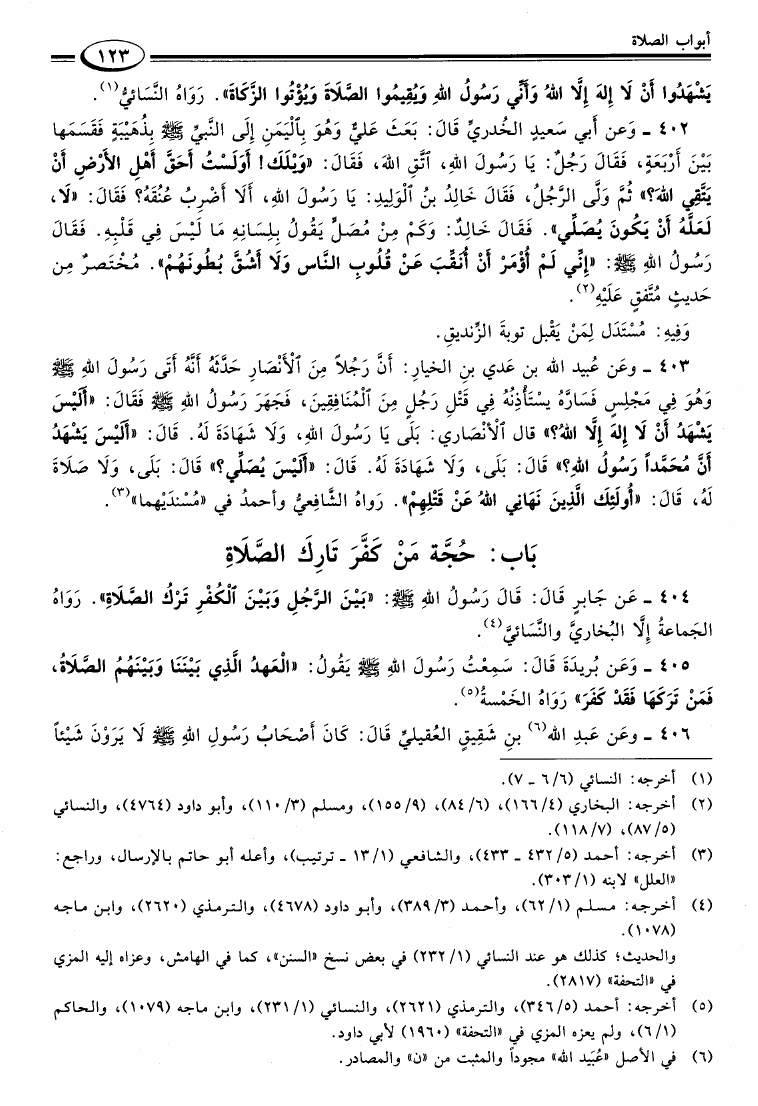 أبواب الصلاة
١٢٣
يَشْهَدُوا أَنْ لَا إِلهَ إِلَّا اللهُ وَأَنِّي رَسُولُ اللهِ وَيُقِيمُوا الصَّلَاةَ وَيُؤْتُوا الزَّكَاةَ». رَوَاهُ النَّسَائِيُّ(١).
٤٠٢ ـ وَعن أبي سَعيدٍ الخُدريِّ قَالَ: بَعَثَ عَليٌّ وَهُوَ بِالْيَمَنِ إِلَى النَّبيِّ ﷺ بِذُهَيْبَةٍ فَقَسَمَها
بَيْنَ أَرْبَعَةٍ، فَقَالَ رَجُلٌ: يَا رَسُولَ اللهِ، اتَّقِ اللهَ، فَقَالَ: «وَيْلَكَ! أَوَلَسْتُ أَحَقَّ أَهْلِ الأَرْضِ أَنْ
يَتَّقِي اللهَ؟» ثُمَّ وَلَّى الرَّجُلُ، فَقَالَ خَالِدُ بنُ الْوَلِيدِ: يَا رَسُولَ اللهِ، أَلَا أَضْرِبُ عُنُقَهُ؟ فَقَالَ: «لَا،
لَعَلَّهُ أَنْ يَكُونَ يُصَلِّي». فَقَالَ خَالِدٌ: وَكَمْ مِنْ مُصَلٍّ يَقُولُ بِلِسَانِهِ مَا لَيْسَ فِي قَلْبِهِ. فَقَالَ
رَسُولُ اللهِ ﷺ: «إِنِّي لَمْ أُؤْمَرْ أَنْ أُنَقِّبَ عَنْ قُلُوبِ النَّاسِ وَلَا أَشُقَّ بُطُونَهُمْ». مُخْتَصرٌ مِن
حَديثٍ مُتَّفقٍ عَلَيْهِ(٢).
وَفِيهِ: مُسْتَدَل لِمَنْ يَقْبل توبةَ الزِّنديقِ.
٤٠٣ ـ وَعن عُبيد الله بن عَدي بنِ الخيار: أَنَّ رَجُلاً مِنَ الْأَنْصَارِ حَدَّثَهُ أَنَّهُ أَتَى رَسُولَ اللهِ ﷺ
وَهُوَ فِي مَجْلِسٍ فَسَارَّهُ يستَأْذِنُهُ فِي قَتْلِ رَجُلٍ مِنَ الْمُنَافِقِينَ، فَجَهَرَ رَسُولُ اللهِ ﷺ فَقَالَ: «أَلَيْسَ
يَشْهَدُ أَنْ لَا إِلهَ إِلَّا اللهُ؟» قال الْأنْصَاري: بَلَى يَا رَسُولَ اللهِ، وَلَا شَهَادَةَ لَهُ. قَالَ: «أَلَيْسَ يَشْهَدُ
أَنَّ مُحَمَّداً رَسُولُ اللهِ؟» قَالَ: بَلَى، وَلَا شَهَادَةَ لَهُ. قَالَ: «أَلَيْسَ يُصَلِّي؟» قَالَ: بَلَى، وَلَا صَلَاةَ
لَهُ، قَالَ: «أُولَئِكَ الَّذِينَ نَهَانِي اللهُ عَنْ قَتْلِهِمْ». رَوَاهُ الشَّافعِيُّ وأحمدُ في «مُسْنَدَيْهما»(٣).
بَاب: حُجَّة مَنْ كَفَّرَ تَارِكَ الصَّلَاةِ
٤٠٤ ـ عَن جَابرٍ قَالَ: قَالَ رَسُولُ اللهِ ﷺ: «بَيْنَ الرَّجُلِ وَبَيْنَ الْكُفْرِ تَرْكُ الصَّلَاةِ». رَوَاهُ
الجَماعةُ إِلَّا البُخاريَّ والنَّسَائيَّ(٤).
٤٠٥ ـ وَعَن بُريدَةَ قَالَ: سَمِعْتُ رَسُولَ اللهِ ﷺ يَقُولُ: «الْعَهدُ الَّذِي بَيْنَنَا وَبَيْنَهُمُ الصَّلَاةُ،
فَمَنْ تَرَكَهَا فَقَدْ كَفَرَ» رَوَاهُ الخَمْسةُ(٥).
٤٠٦ ـ وعَن عَبدِ الله(٦) بنِ شَقيقٍ العُقيليِّ قَالَ: كَانَ أَصْحَابُ رَسُولِ اللهِ ﷺ لَا يَرَوْنَ شَيْئاً
(١) أخرجه: النسائي (٦/٦ ـ ٧).
(٢) أخرجه: البخاري (١٦٦/٤)، (٨٤/٦)، (١٥٥/٩)، ومسلم (١١٠/٣)، وأبو داود (٤٧٦٤)، والنسائي
(٨٧/٥)، (١١٨/٧).
(٣) أخرجه: أحمد (٤٣٢/٥ ـ ٤٣٣)، والشافعي (١٣/١ ـ ترتيب)، وأعله أبو حاتم بالإرسال، وراجع:
«العلل» لابنه (٣٠٣/١).
(٤) أخرجه: مسلم (٦٢/١)، وأحمد (٣٨٩/٣)، وأبو داود (٤٦٧٨)، والترمذي (٢٦٢٠)، وابن ماجه
(١٠٧٨).
والحديث؛ كذلك هو عند النسائي (٢٣٢/١) في بعض نسخ «السنن»، كما في الهامش، وعزاه إليه المزي
في «التحفة» (٢٨١٧).
(٥) أخرجه: أحمد (٣٤٦/٥)، والترمذي (٢٦٢١)، والنسائي (٢٣١/١)، وابن ماجه (١٠٧٩)، والحاكم
(٦/١)، ولم يعزه المزي في «التحفة» (١٩٦٠) لأبي داود.
(٦) في الأصل «عُبَيد الله» مجوداً والمثبت من «ن» والمصادر.